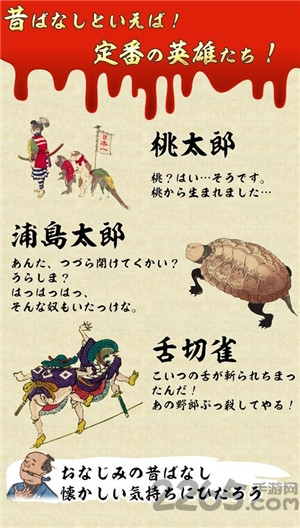 昔ばなしといえば！
定番の英雄たち！
日本一
桃太郎
桃？はい…そうです。
桃から生まれました…
浦島太郎
あんた、つづら開けてくかい？
うらしま？
はっはっはっ、
そんな奴もいたっけな。
舌切雀
こいつの舌が斬られちまっ
たんだ！
あの野郎ぶっ殺してやる！
おなじみの昔ばなし
懐かしい気持ちにひたろう
2265.com
手游网